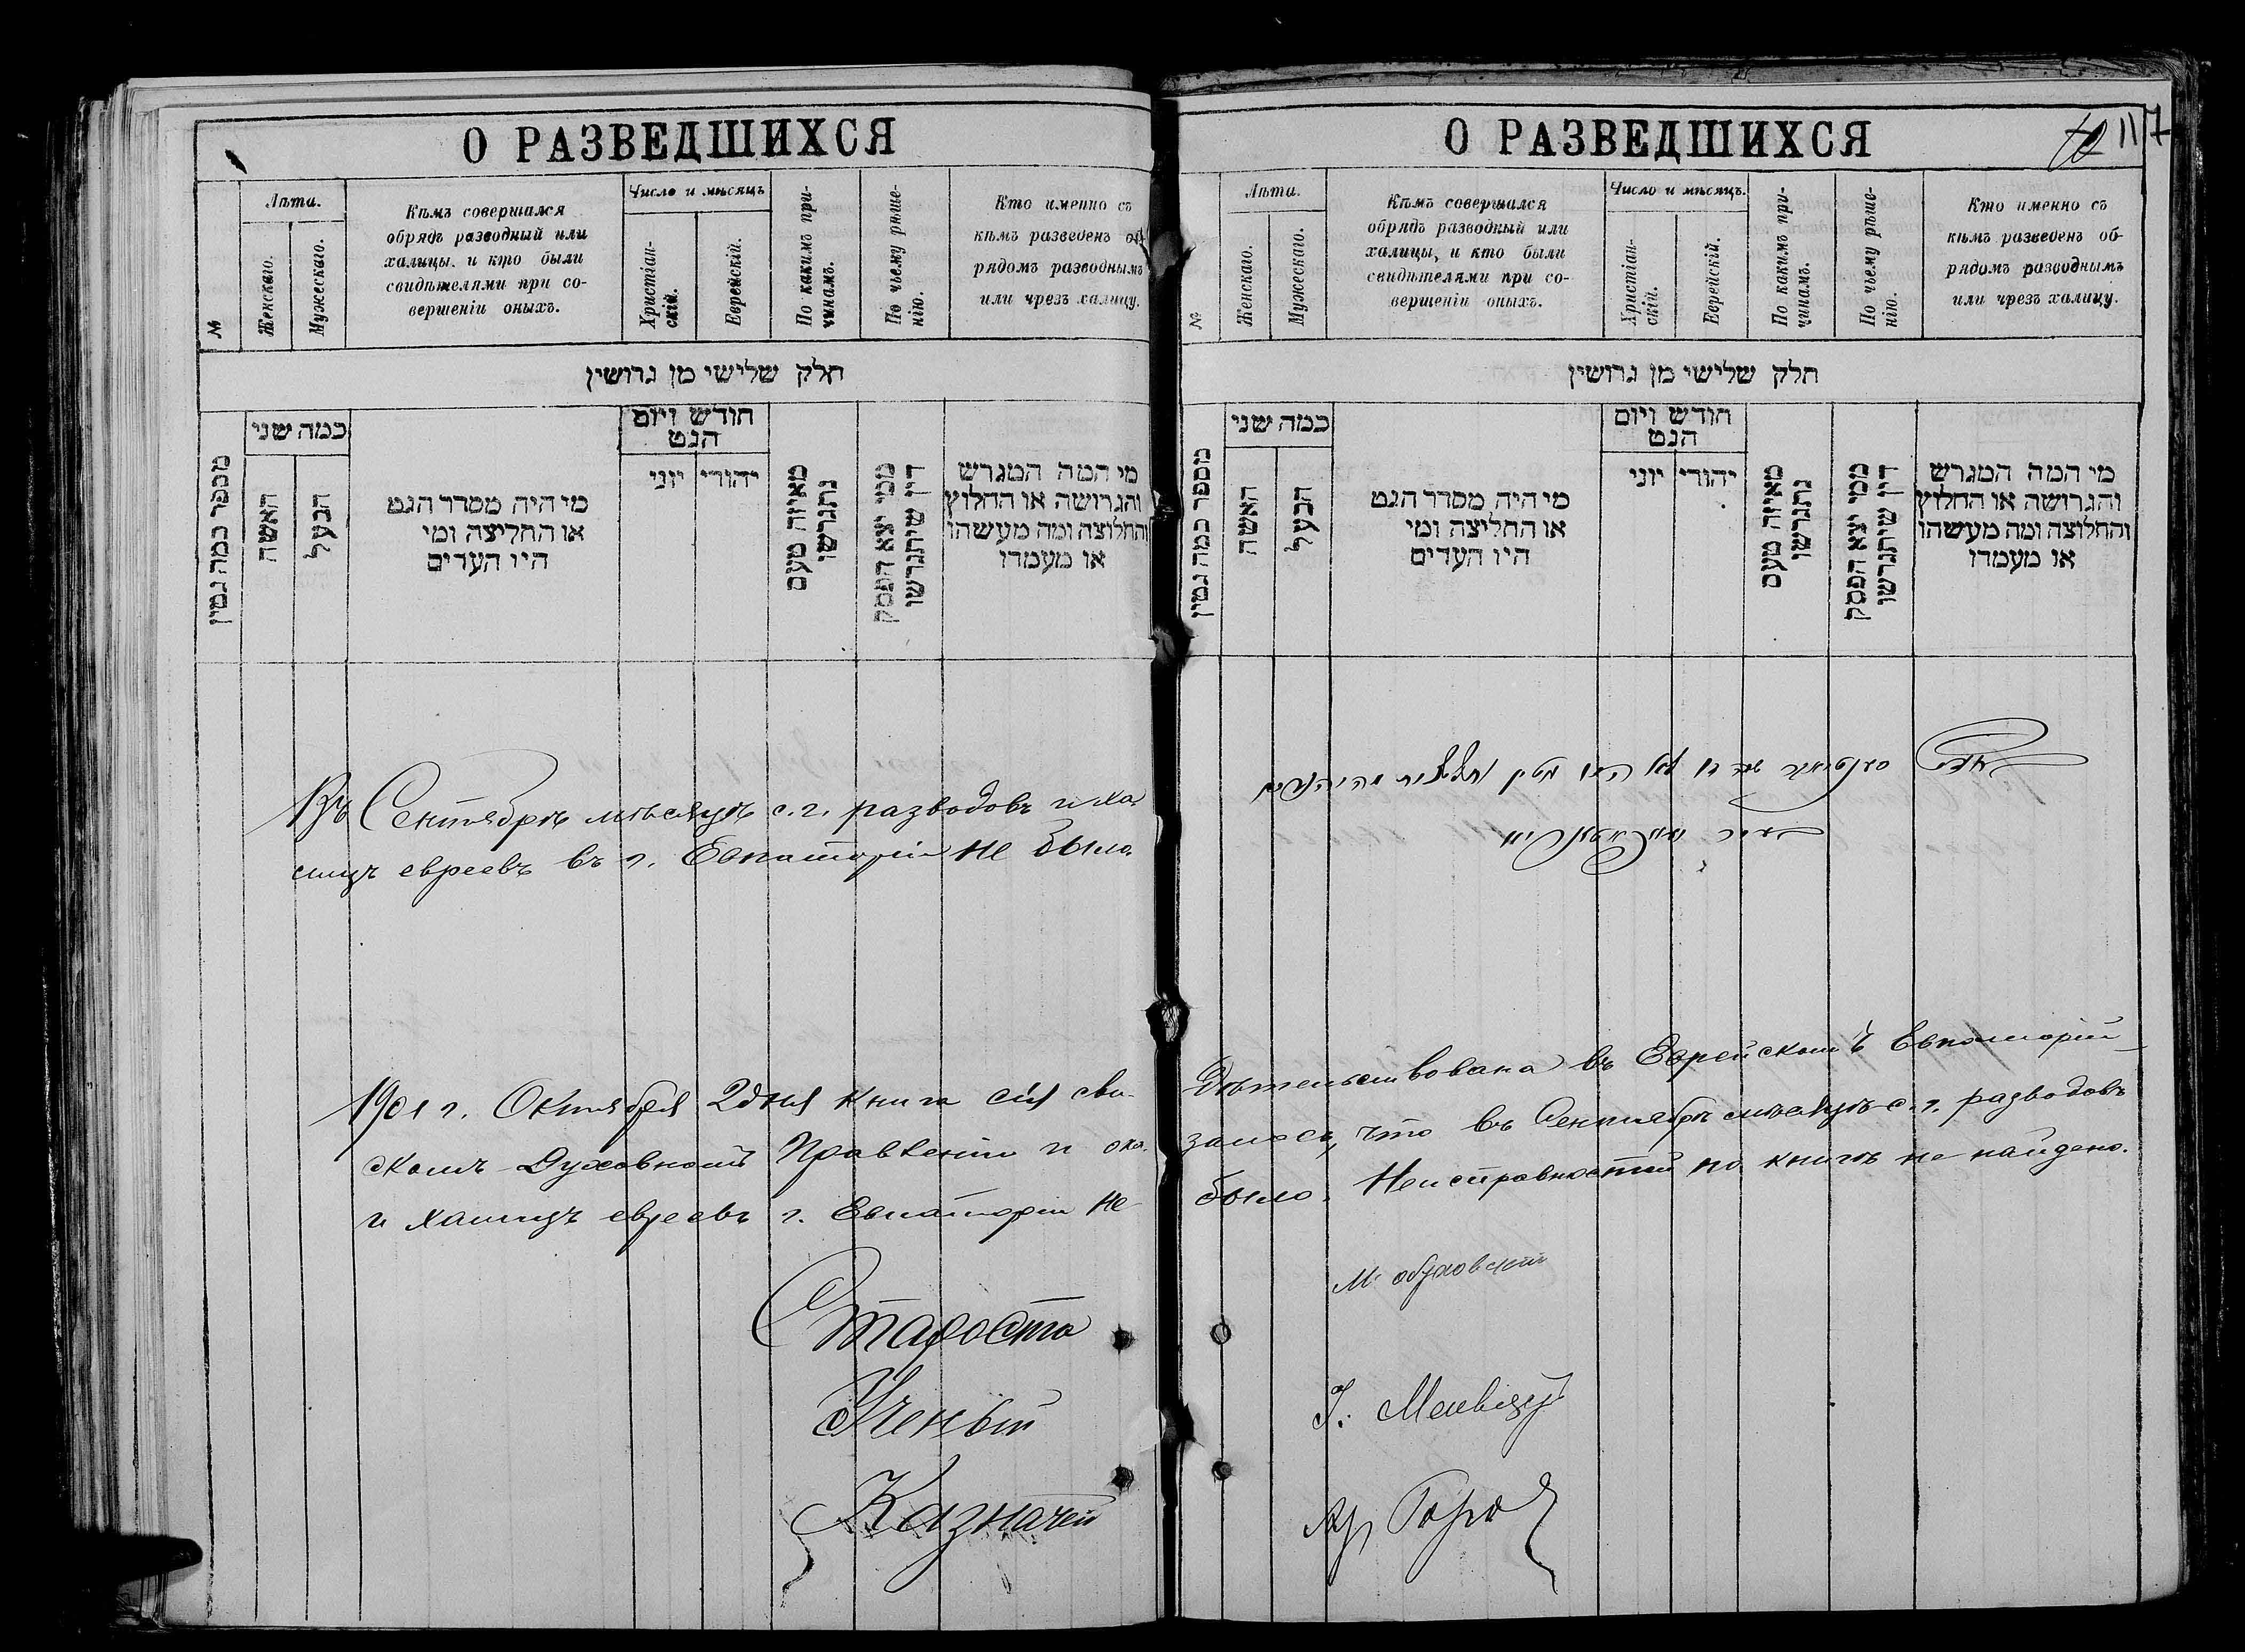 О РАЗВЕДШИХСЯ
№
Лѣта.
Женскаго.
Мужескаго.
Кѣмъ совершался
обрядъ разводный или
халицы, и кто были
свидѣтелями при со-
вершеніи оныхъ.
Число и мѣсяцъ
Христіан-
скій.
Еврейскій.
По какимъ при-
чинамъ.
По чьему рѣше-
нію.
Кто именно съ
кѣмъ разведенъ об-
рядомъ разводнымъ
или чрезъ халицу.
חלק שלישי מן גרושין
מספר כמה גטין
כמה שני
האשה
הבעל
מי היה מסדר הגט
או החליצה ומי
היו העדים
חודש ויום
הגט
יוני
יהודי
מאיזה טעם
נתגרשו
ממי יצא הפסק
דין שיתגרשו
מי המה המגרש
והגרושה או החלוץ
והחלוצה ומה מעשהו
או מעמדו
Въ Сентябрѣ мѣсяцѣ с. г. разводовъ и ха-
лицъ евреевъ въ г. Евпаторіи не было.
1901 г. Октября 2 дня книга сія сви-
скомъ Духовномъ Правленіи и ока-
и халицъ евреевъ г. Евпаторіи не
Староста
Ученый
Казначей
О РАЗВЕДШИХСЯ
117
№
Лѣта.
Женскаго.
Мужескаго.
Кѣмъ совершался
обрядъ разводный или
халицы, и кто были
свидѣтелями при со-
вершеніи оныхъ.
Число и мѣсяцъ.
Христіан-
скій.
Еврейскій.
По какимъ при-
чинамъ.
По чьему рѣше-
нію.
Кто именно съ
кѣмъ разведенъ об-
рядомъ разводнымъ
или чрезъ халицу.
חלק שלישי מן גרושין
מספר כמה גטין
כמה שני
האשה
הבעל
מי היה מסדר הגט
או החליצה ומי
היו העדים
חודש ויום
הגט
יוני
יהודי
מאיזה טעם
נתגרשו
ממי יצא הפסק
דין שיתגרשו
מי המה המגרש
והגרושה או החלוץ
והחלוצה ומה מעשהו
או מעמדו
дѣтельствована въ Еврейскомъ Евпаторій-
залось, что въ Сентябрѣ мѣсяцѣ с. г. разводовъ
было. Неисправностей по книгѣ не найдено.
М. Обуховскій